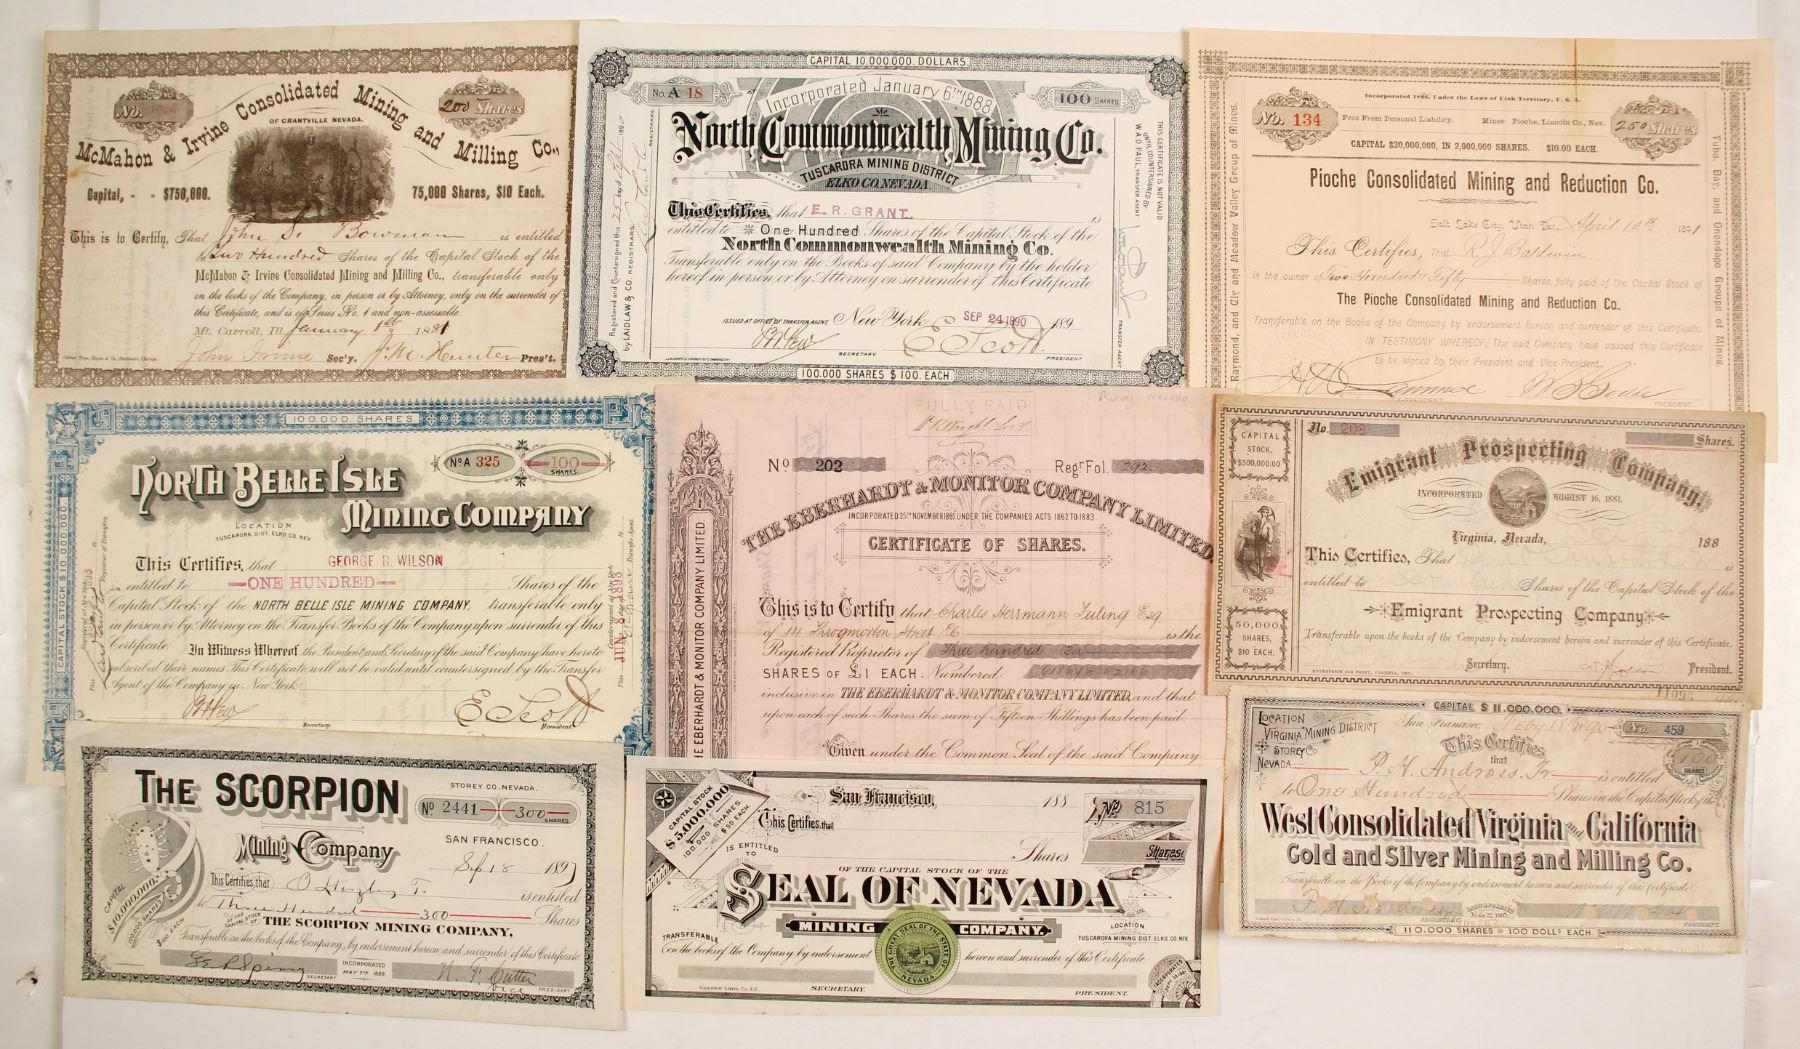 No.
200 Shares
McMahon & Irvine Consolidated Mining and Milling Co.,
OF GRANTVILLE NEVADA.
Capital, - - $750,000.
75,000 Shares, $10 Each.
This is to Certify, That John S. Bowman is entitled
Two Hundred Shares of the Capital Stock of the
McMahon & Irvine Consolidated Mining and Milling Co., transferable only
on the books of the Company, in person or by Attorney, only on the surrender of
this Certificate, and is of Series No. 1 and non-assessable.
Mt. Carroll, Ill. January 1st 1881
John Irvine Sec'y. J. M. Hunter Pres't.
CAPITAL 10,000,000 DOLLARS
No. A 18
Incorporated January 6TH 1888
100 SHARES
North Commonwealth Mining Co.
TUSCARORA MINING DISTRICT
ELKO CO. NEVADA
This Certifies, that E. R. GRANT. is
entitled to One Hundred Shares of the Capital Stock of the
North Commonwealth Mining Co.
Transferable only on the Books of said Company by the holder
hereof in person or by Attorney on surrender of this Certificate
ISSUED AT OFFICE OF TRANSFER AGENT, New York SEP 24 1890 189
SECRETARY.
E. Scott
PRESIDENT
100,000 SHARES $100. EACH
Registered and Countersigned this
by LAIDLAW & CO. REGISTRARS.
THIS CERTIFICATE IS NOT VALID
UNTIL COUNTERSIGNED BY
W A D PAUL, TRANSFER AGENT
TRANSFER AGENT
Incorporated Under the Laws of Utah Territory, U. S. A.
No. 134
Free From Personal Liability.
Mines: Pioche, Lincoln Co., Nev.
250 Shares
CAPITAL $20,000,000, IN 2,000,000 SHARES. $10.00 EACH.
Pioche Consolidated Mining and Reduction Co.
Salt Lake City, Utah Ter. April 10th 1891
This Certifies, That R. J. Baldwin
is the owner of Two Hundred Fifty Shares, fully paid of the Capital Stock of
The Pioche Consolidated Mining and Reduction Co.,
Transferable on the Books of the Company by endorsement hereon and surrender of this Certificate.
IN TESTIMONY WHEREOF, The said Company have caused this Certificate
to be signed by their President and Vice-President.
PRESIDENT.
Raymond, and Ely and Meadow Valley Group of Mines.
Yuba, Day, and Onondago Groups of Mines.
100,000 SHARES
NORTH BELLE ISLE
MINING COMPANY
No A 325
100
SHARES
LOCATION
TUSCARORA, DIST. ELKO CO. NEV.
This Certifies, that GEORGE B. WILSON
is entitled to ONE HUNDRED Shares of the
Capital Stock of the NORTH BELLE ISLE MINING COMPANY, transferable only
in person or by Attorney on the Transfer Books of the Company upon surrender of this
Certificate. In Witness Whereof the President and Secretary of the said Company have hereto
subscribed their names This Certificate will not be valid until countersigned by the Transfer
Agent of the Company in New York
Secretary.
E. Scott
President
CAPITAL STOCK $10,000,000
JUN 8 1893
FULLY PAID
Mining Nevada
No 202
Regr Fol. 292
THE EBERHARDT & MONITOR COMPANY LIMITED.
INCORPORATED 25TH NOVEMBER 1885 UNDER THE COMPANIES ACTS 1862 TO 1883.
CERTIFICATE OF SHARES.
This is to Certify that Charles Herrmann Teuling Esq
of 14 Throgmorton Street E C is the
Registered Proprietor of Three hundred
SHARES OF £1 EACH. Numbered
inclusive in THE EBERHARDT & MONITOR COMPANY LIMITED, and that
upon each of such Shares the sum of Fifteen Shillings has been paid.
Given under the Common Seal of the said Company
THE EBERHARDT & MONITOR COMPANY LIMITED.
CAPITAL
STOCK,
$500,000.00
50,000
SHARES,
$10 EACH.
No. 208
Shares.
Emigrant Prospecting Company,
INCORPORATED AUGUST 16, 1881.
Virginia, Nevada, 188
This Certifies, That is
entitled to Shares of the Capital Stock of the
Emigrant Prospecting Company
Transferable upon the books of the Company by indorsement hereon and surrender of this Certificate.
Secretary.
President.
ENTERPRISE JOB PRINT, VIRGINIA, NEV.
THE SCORPION
Mining Company
STOREY CO. NEVADA.
No 2441 300 SHARES
SAN FRANCISCO.
Sep 18 1897
This Certifies, that
is entitled
to Three Hundred 300 Shares
OF THE CAPITAL STOCK OF THE THE SCORPION MINING COMPANY,
Transferable on the books of the Company, by endorsement hereon and surrender of this Certificate
SECRETARY
INCORPORATED
PRESIDENT.
CAPITAL
$10,000,000.
100,000 SHARES
$100 EACH
CAPITAL STOCK
$5,000,000
100,000 SHARES
$50 EACH
San Francisco, 188
No 815
This Certifies, that
IS ENTITLED
TO Shares
Shares
OF THE CAPITAL STOCK OF THE
SEAL OF NEVADA
MINING COMPANY.
THE GREAT SEAL OF THE STATE OF NEVADA
TRANSFERABLE
LOCATION
TUSCARORA MINING DIST. ELKO CO. NEV.
On the books of the Company by endorsement hereon and surrender of this Certificate.
SECRETARY.
PRESIDENT.
INCORPORATED
CAPITAL $11,000,000.
LOCATION
VIRGINIA MINING DISTRICT
STOREY CO
NEVADA
San Francisco, 1890
No. 459
This Certifies
that
100
SHARES
P. H. Andross, Jr is entitled
to One Hundred Shares in the Capital Stock of the
West Consolidated Virginia and California
Gold and Silver Mining and Milling Co.
Transferable on the Books of the Company by endorsement hereon and surrender of this Certificate
SECRETARY
INCORPORATED
PRESIDENT.
110,000 SHARES $100 DOLLS EACH.